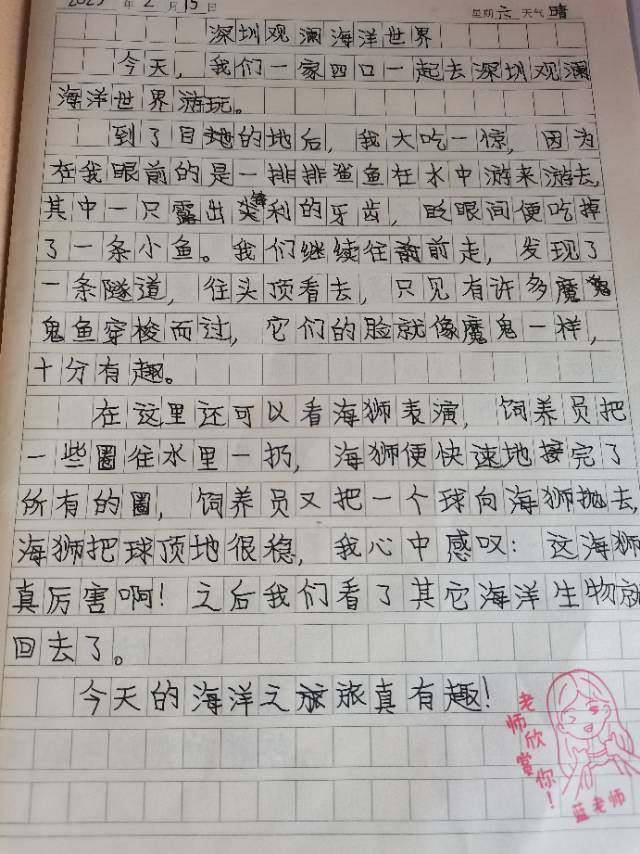 2025年2月15日 星期六天气晴
深圳观澜海洋世界
今天，我们一家四口一起去深圳观澜
海洋世界游玩。
到了目的地后，我大吃一惊，因为
在我眼前的是一排排鲨鱼在水中游来游去，
其中一只露出尖利的牙齿，眨眼间便吃掉
了一条小鱼。我们继续往前走，发现了
一条隧道，往头顶看去，只见有许多魔
鬼鱼穿梭而过，它们的脸就像魔鬼一样，
十分有趣。
在这里还可以看海狮表演，饲养员把
一些圈往水里一扔，海狮便快速地接完了
所有的圈，饲养员又把一个球向海狮抛去，
海狮把球顶地很稳，我心中感叹：这海狮
真厉害啊！之后我们看了其它海洋生物就
回去了。
今天的海洋之旅真有趣！
老师欣赏你！
蓝老师